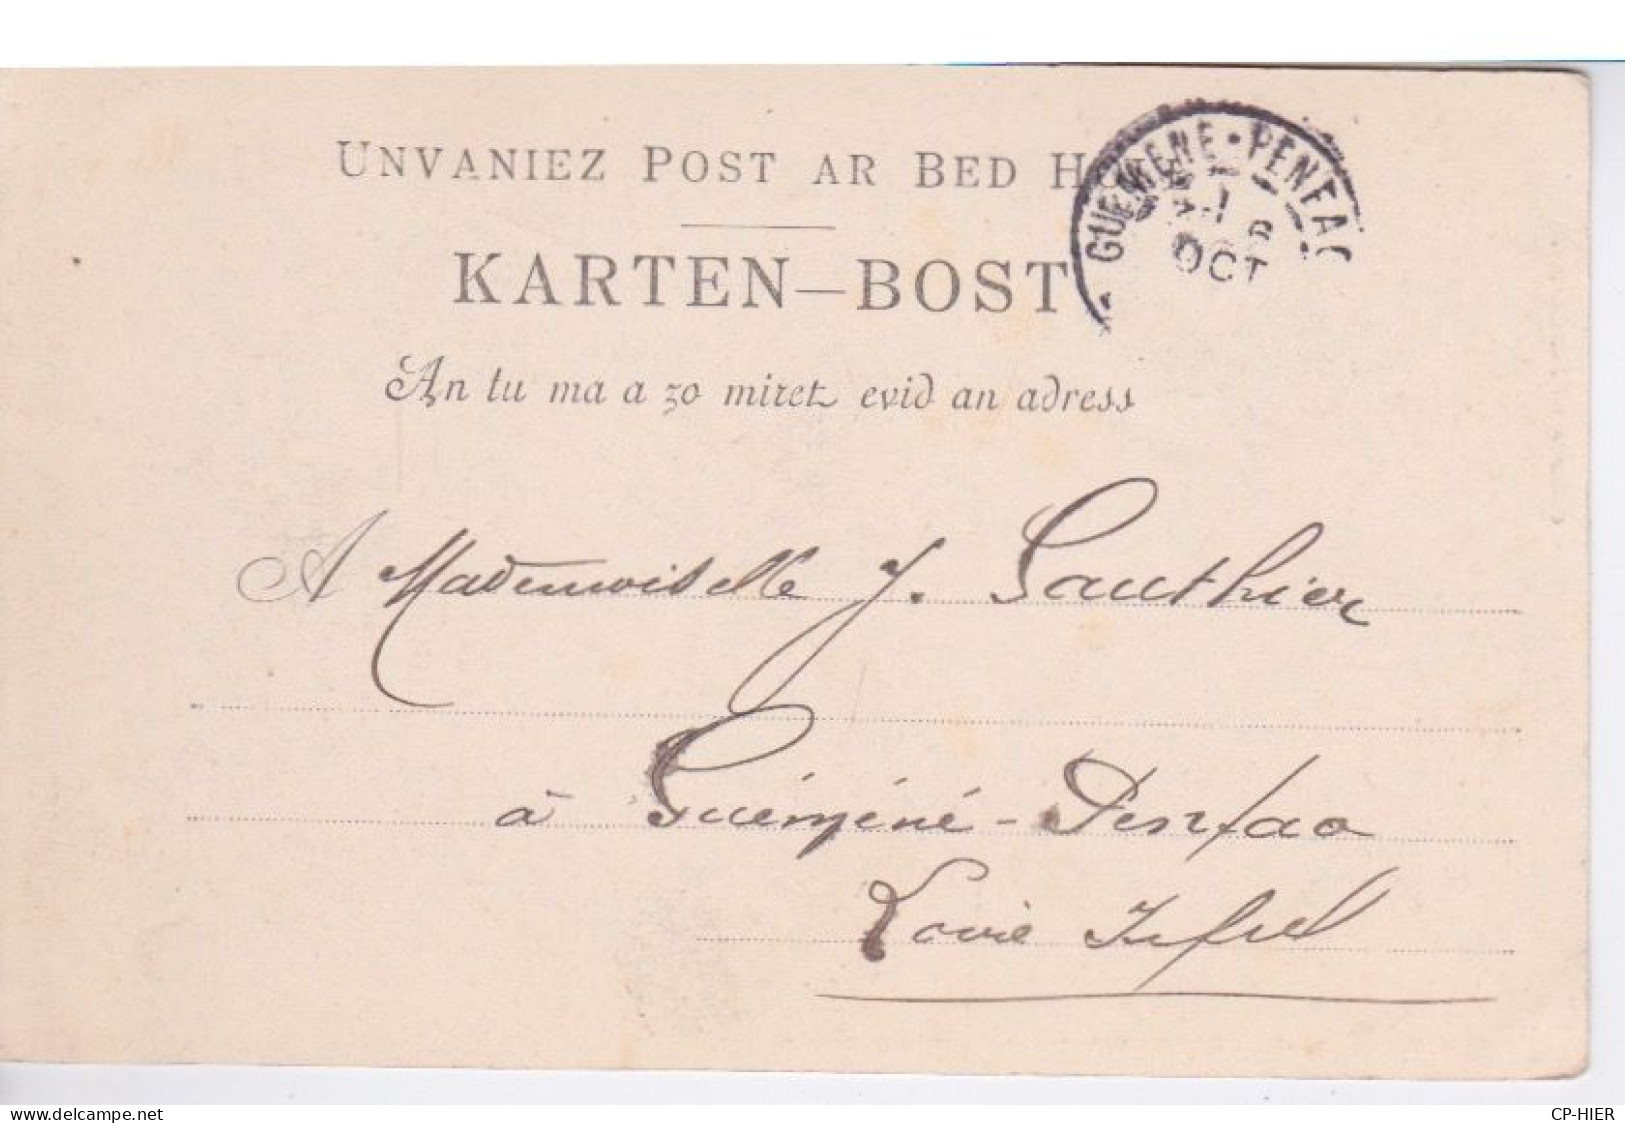 UNVANIEZ POST AR BED
KARTEN-BOST
An tu ma a zo miret evid an adress
GUEMENE-PENFAO
OCT
A Mademoiselle J. Gauthier
à Guéméné-Penfao
Loire Infre
delcampe.net
CP-HIER